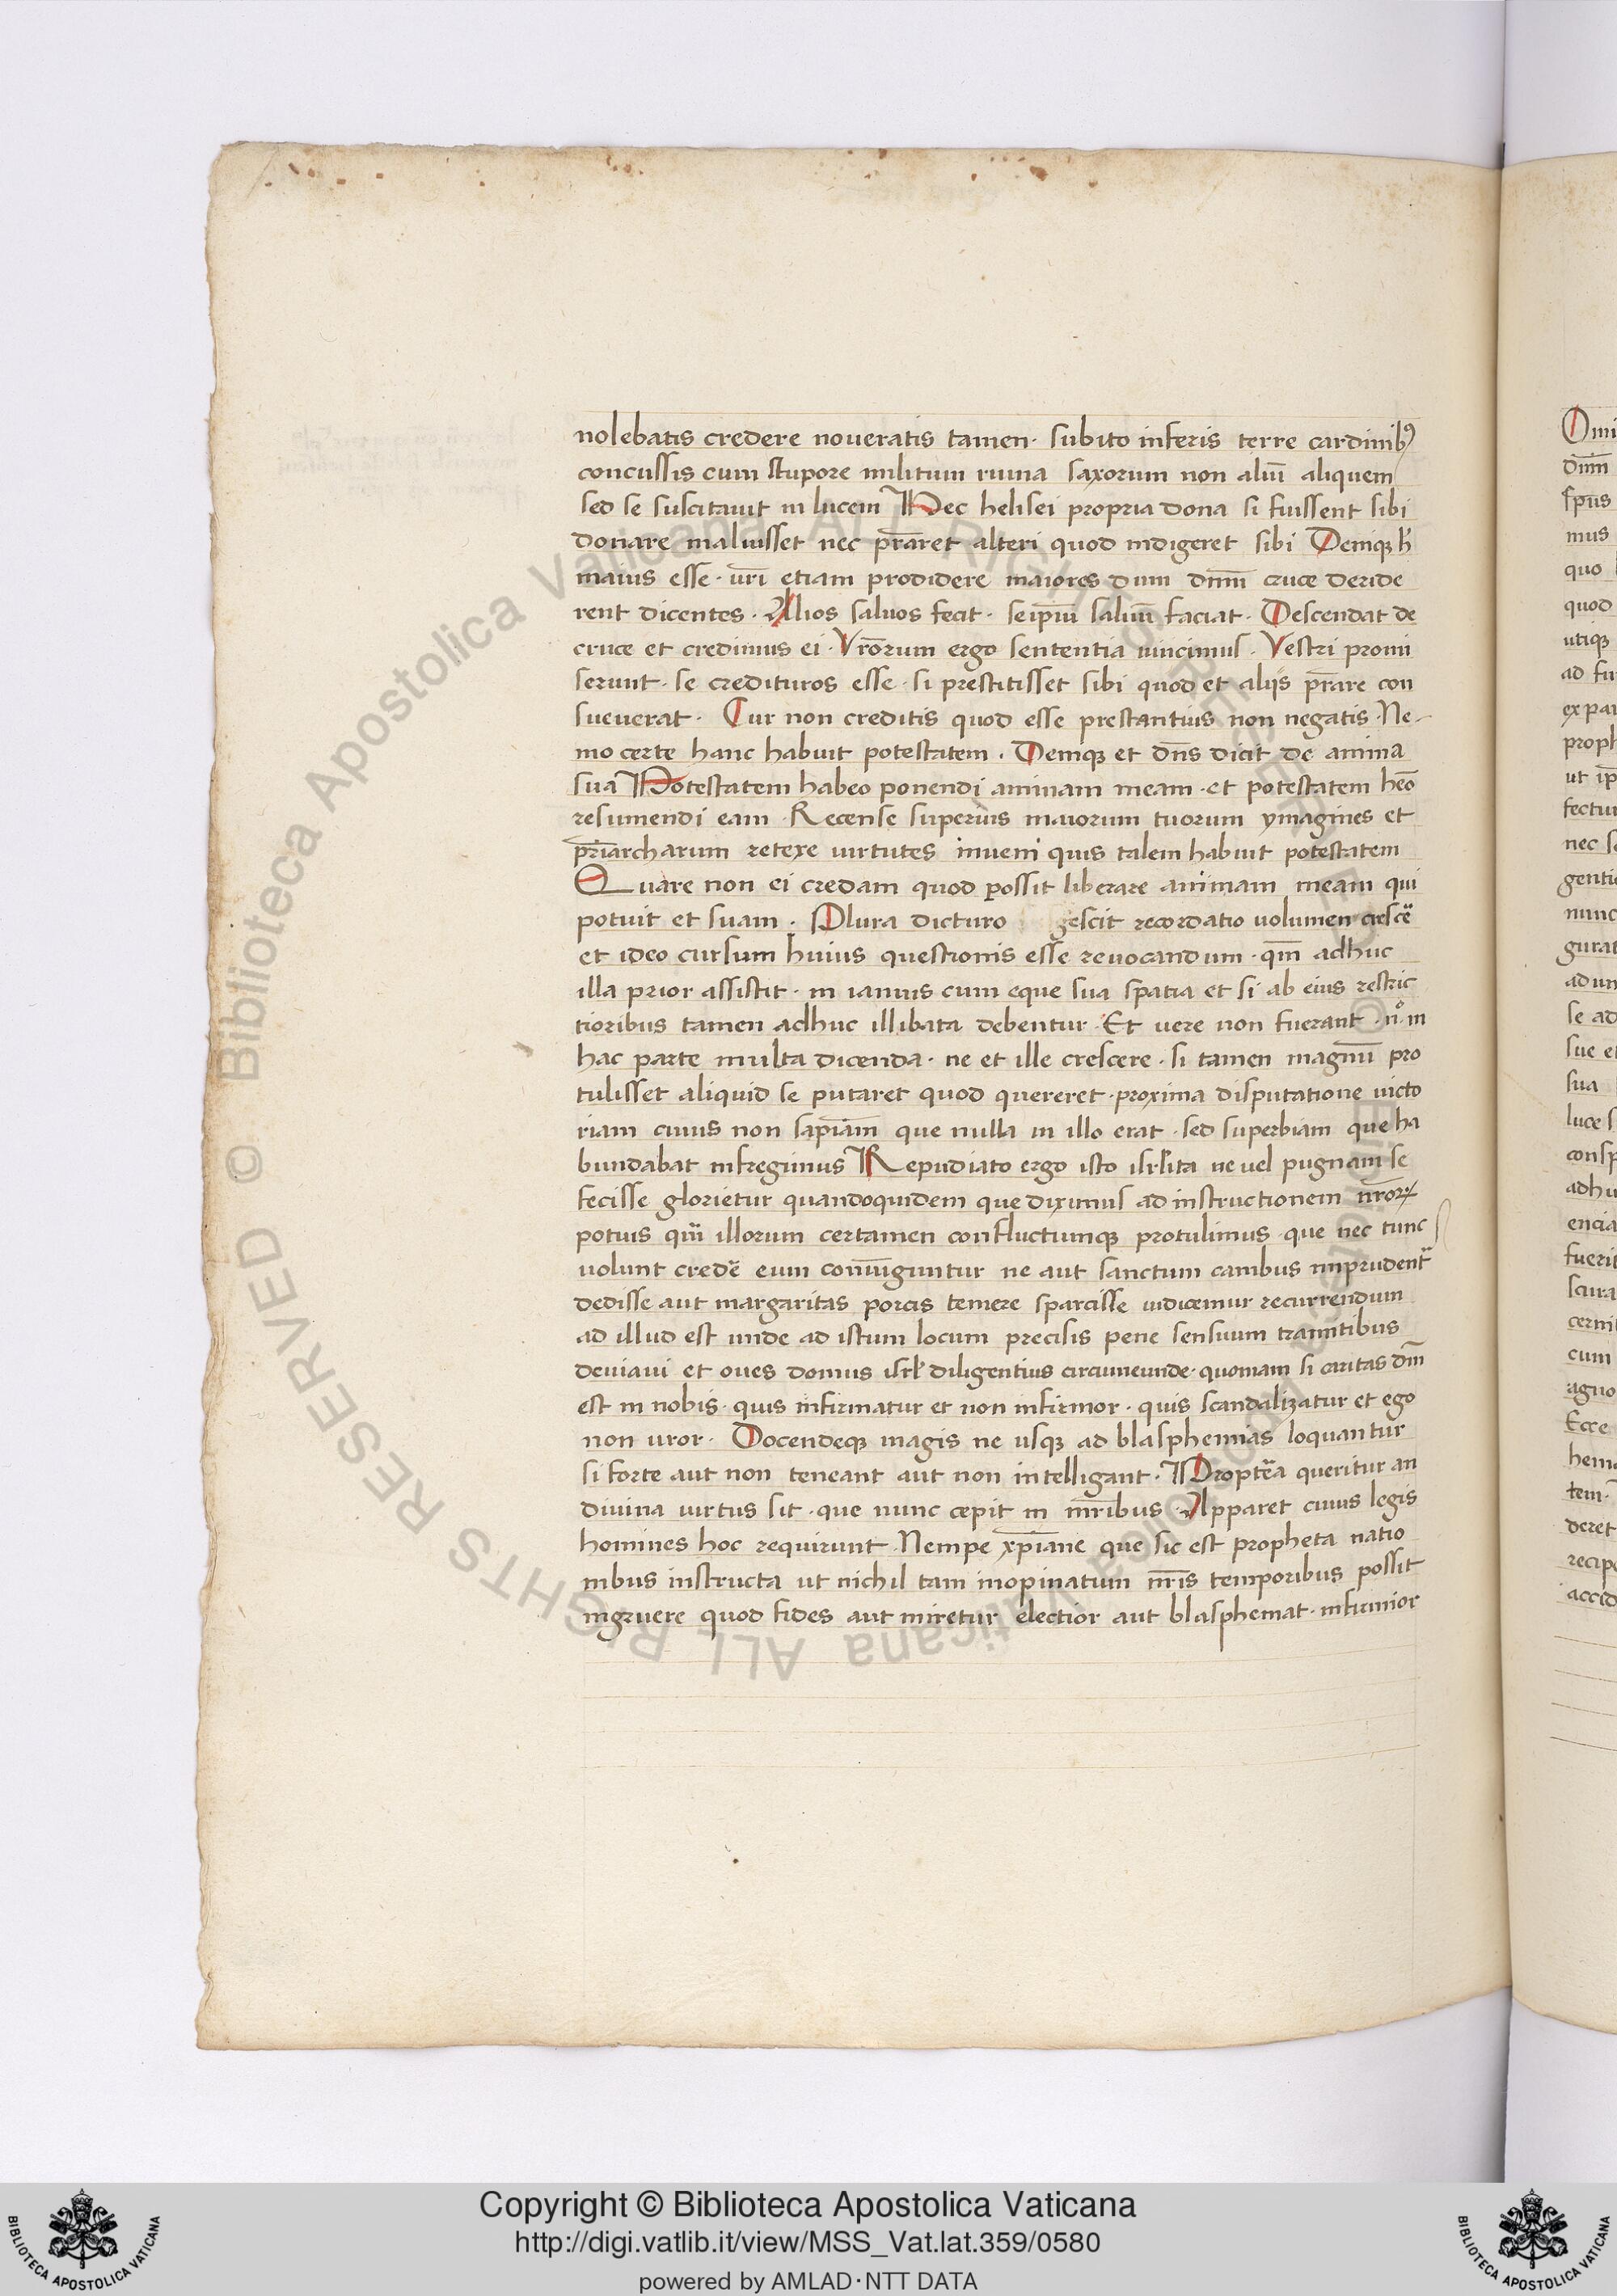 nolebatis credere noveratis tamen · subito inferis terre cardinibꝰ
concussis cum stupore militum ruina saxorum non aliū aliquem
sed se suscitavit in lucem Hec helisei propria dona si fuissent sibi
donare maluisset nec p̄raret alteri quod indigeret sibi Deniqꝫ h̄
maius esse · ur̄i etiam prodidere maiores dum dnm̄ cruce deride
rent dicentes · Alios salvos fecit · seip̄m saluū faciat · Descendat de
cruce et credimus ei · Vr̄orum ergo sententia vincimus · Vestri promi
serunt · se credituros esse · si prestitisset sibi quod et aliis p̄rare con
sueverat · Cur non creditis quod esse prestantius non negatis · Ne
mo certe hanc habuit potestatem · Deniqꝫ et dn̄s dicit de anima
sua Potestatem habeo ponendi animam meam · et potestatem heō
resumendi eam · Recense superius maiorum tuorum ymagines et
pr̄iarcharum retexe virtutes inveni quis talem habuit potestatem
Quare non ei credam quod possit liberare animam meam qui
potuit et suam · Plura dicturo gescit recordatio volumen crescē
et ideo cursum huius questionis esse revocandum · qm̄ adhuc
illa prior assistit · in ianuis cum eque sua spatia et si ab eius restric
tioribus tamen adhuc illibata debentur · Et vere non fuerant · nº in
hac parte multa dicenda · ne et ille crescere · si tamen magnū pro
tulisset aliquid se putaret quod quereret · proxima disputatione victo
riam cuius non sapīam que nulla in illo erat · sed superbiam que ha
bundabat infregimus Repudiato ergo isto isr̄lita ne vel pugnam se
fecisse glorietur quandoquidem que diximus ad instructionem nr̄oꝝ
potius qͣ illorum certamen conflictumqꝫ protulimus · que nec tunc
volunt credē eum convīguntur ne aut sanctum canibus imprudent̄
dedisse aut margaritas porcis temere sparcisse iudicemur recurrendum
ad illud est unde ad istum locum precisis pene sensuum tramitibus
deviavi et oves domus isrl̄ diligentius circumeunde · quoniam si caritas dm̄
est in nobis · quis infirmatur et non infirmor · quis scandalizatur et ego
non uror · Docendeqꝫ magis ne usqꝫ ad blasphemias loquantur
si forte aut non teneant aut non intelligant · Proptēa queritur an
divina virtus sit · que nunc cepit in mr̄ibus · Apparet cuius legis
homines hoc requirunt · Nempe xp̄iane que sic est propheta natio
nibus instructa ut nichil tam inopinatum nr̄is temporibus possit
ingruere quod fides aut miretur electior aut blasphemat · infirmior
Copyright © Biblioteca Apostolica Vaticana
http://digi.vatlib.it/view/MSS_Vat.lat.359/0580
powered by AMLAD·NTT DATA